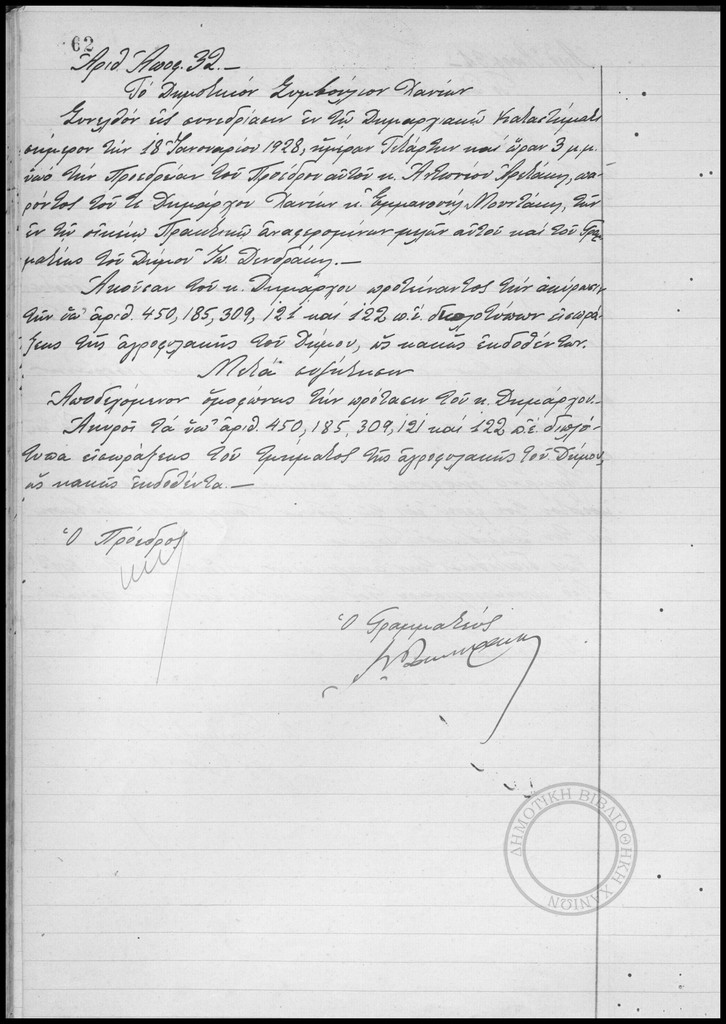 62
Ἀριθ. Ἀποφ. 32.—
Τό Δημοτικόν Συμβούλιον Χανίων
Συνελθόν εἰς συνεδρίασιν ἐν τῷ Δημαρχιακῷ Καταστήματι
σήμερον τήν 18 Ἰανουαρίου 1928, ἡμέραν Τετάρτην καί ὥραν 3 μ.μ.
ὑπό τήν Προεδρείαν τοῦ Προέδρου αὐτοῦ κ. Ἀντωνίου πα-
ρόντος τοῦ τε Δημάρχου Χανίων κ. Ἐμμανουήλ Μουντάκη, τῶν
ἐν τῷ οἰκείῳ Πρακτικῷ ἀναφερομένων μελῶν αὐτοῦ καί τοῦ Γραμ-
ματέως τοῦ Δήμου Ἰω. Δενδράκη.—
Ἀκοῦσαν τοῦ κ. Δημάρχου προτείναντος τήν ἀκύρωσιν
τῶν ὑπ' ἀριθ. 450, 185, 309, 121 καί 122 π.ἔ. διπλοτύπων εἰσπρά-
ξεως τῆς ἀγροφυλακῆς τοῦ Δήμου, ὡς κακῶς ἐκδοθέντων.
Μετά συζήτησιν
Ἀποδεχόμενον ὁμοφώνως τήν πρότασιν τοῦ κ. Δημάρχου.
Ἀκυροῖ τά ὑπ' ἀριθ. 450, 185, 309, 121 καί 122 π.ἔ. διπλό-
τυπα εἰσπράξεως τοῦ τμήματος τῆς ἀγροφυλακῆς τοῦ Δήμου,
ὡς κακῶς ἐκδοθέντα.—
Ὁ Πρόεδρος
Ὁ Γραμματεύς
ΔΗΜΟΤΙΚΗ ΒΙΒΛΙΟΘΗΚΗ ΧΑΝΙΩΝ